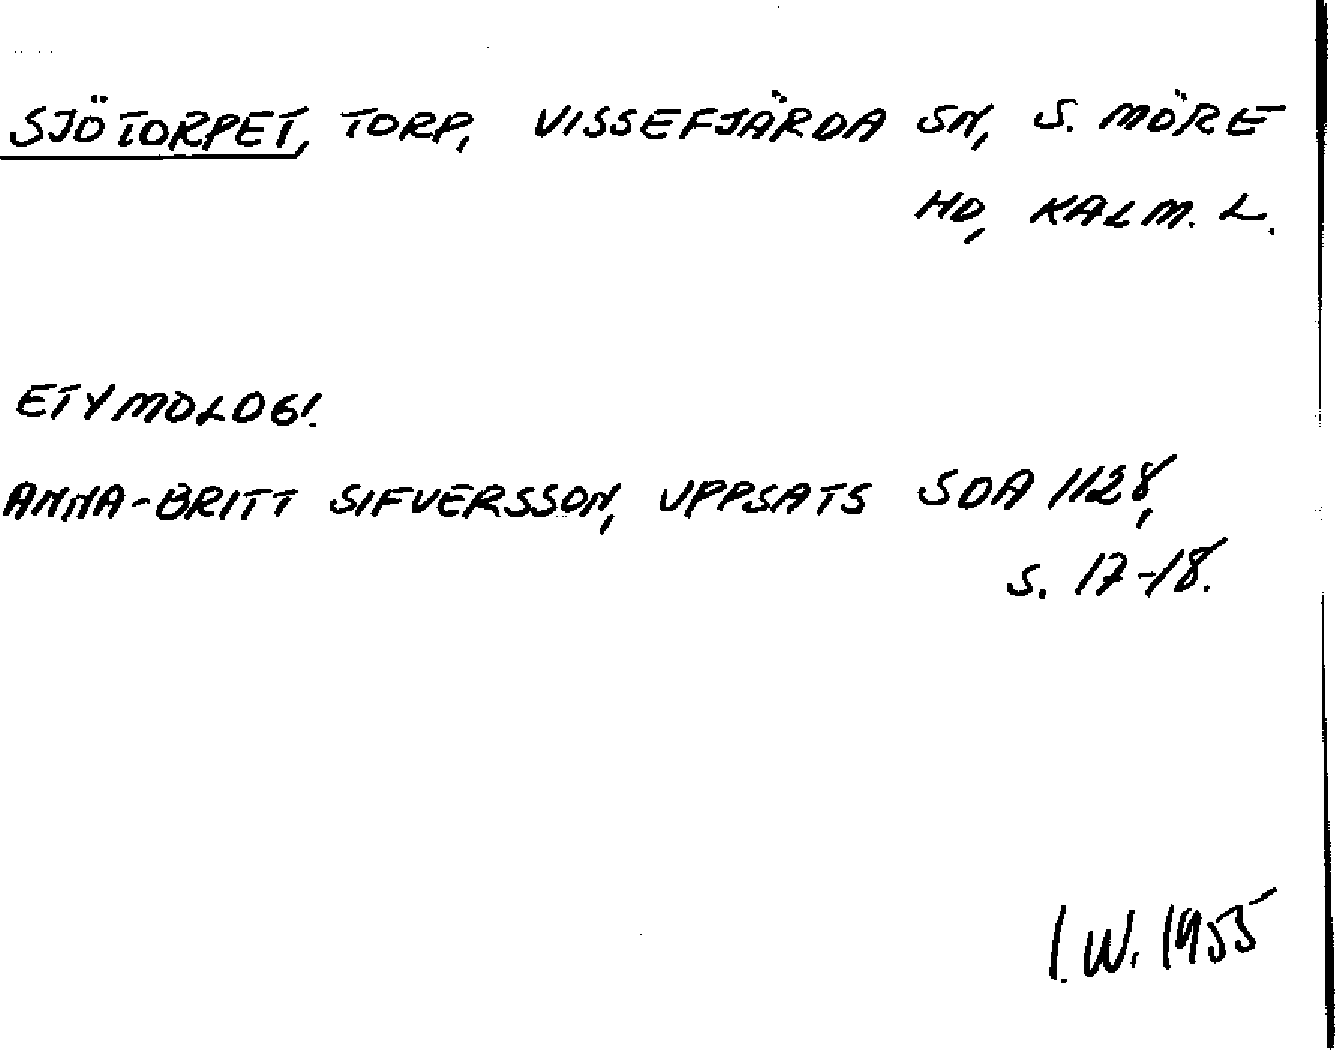 SJÖTORPET, TORP, VISSEFJÄRDA SN, S. MÖRE
HD, KALM. L.
ETYMOLOGI.
ANNA-BRITT SIFVERSSON, UPPSATS SOA 1128,
s. 17-18.
I. W. 1955